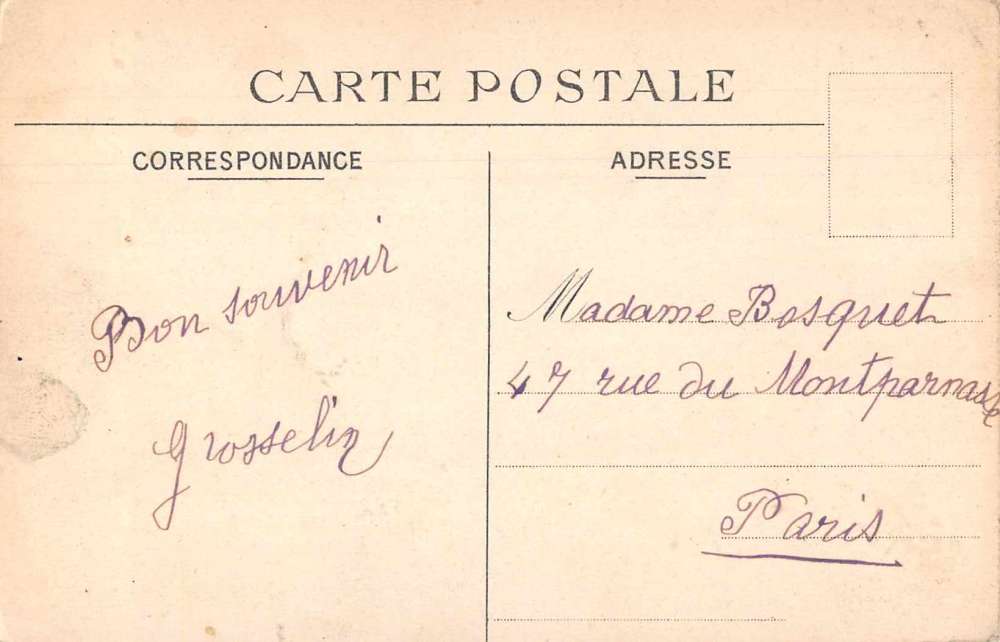 CARTE POSTALE
CORRESPONDANCE
Bon souvenir
Grosselin
ADRESSE
Madame Bosquet
47 rue du Montparnasse
Paris